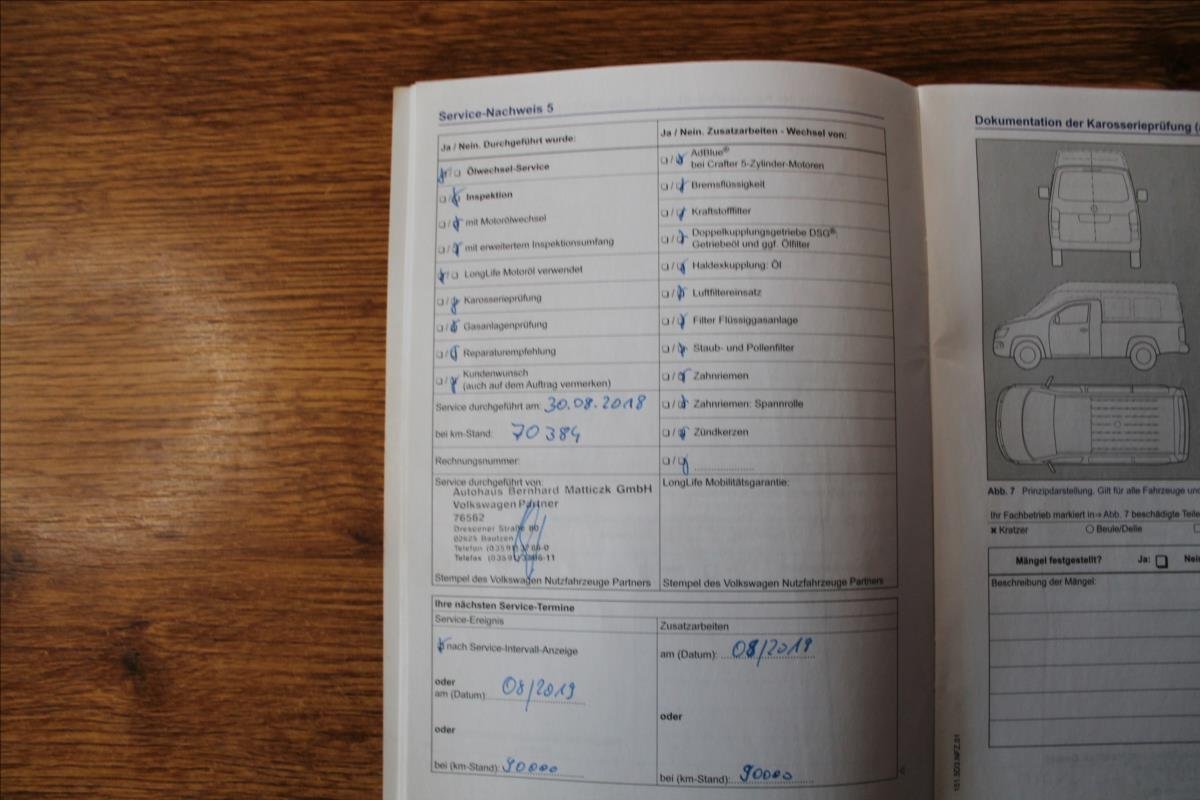 Service-Nachweis 5
Ja / Nein. Durchgeführt wurde:
Ölwechsel-Service
Inspektion
mit Motorölwechsel
mit erweitertem Inspektionsumfang
LongLife Motoröl verwendet
Karosserieprüfung
Gasanlagenprüfung
Reparaturempfehlung
Kundenwunsch
(auch auf dem Auftrag vermerken)
Service durchgeführt am: 30.08.2018
bei km-Stand: 70384
Rechnungsnummer:
Service durchgeführt von:
Autohaus Bernhard Matticzk GmbH
Volkswagen Partner
76562
Dresdener Straße
02625 Bautzen
Telefon
Telefax
Stempel des Volkswagen Nutzfahrzeuge Partners
Ja / Nein. Zusatzarbeiten - Wechsel von:
AdBlue®
bei Crafter 5-Zylinder-Motoren
Bremsflüssigkeit
Kraftstofffilter
Doppelkupplungsgetriebe DSG®:
Getriebeöl und ggf. Ölfilter
Haldexkupplung: Öl
Luftfiltereinsatz
Filter Flüssiggasanlage
Staub- und Pollenfilter
Zahnriemen
Zahnriemen: Spannrolle
Zündkerzen
LongLife Mobilitätsgarantie:
Stempel des Volkswagen Nutzfahrzeuge Partners
Ihre nächsten Service-Termine
Service-Ereignis
nach Service-Intervall-Anzeige
oder
am (Datum): 08/2019
oder
bei (km-Stand): 90000
Zusatzarbeiten
am (Datum): 08/2019
oder
bei (km-Stand): 90000
Dokumentation der Karosserieprüfung
Abb. 7 Prinzipdarstellung. Gilt für alle Fahrzeuge
Ihr Fachbetrieb markiert in ⇒ Abb. 7 beschädigte Teile
Kratzer Beule/Delle
Mängel festgestellt? Ja:
Beschreibung der Mängel:
151.5D3.NFZ.01